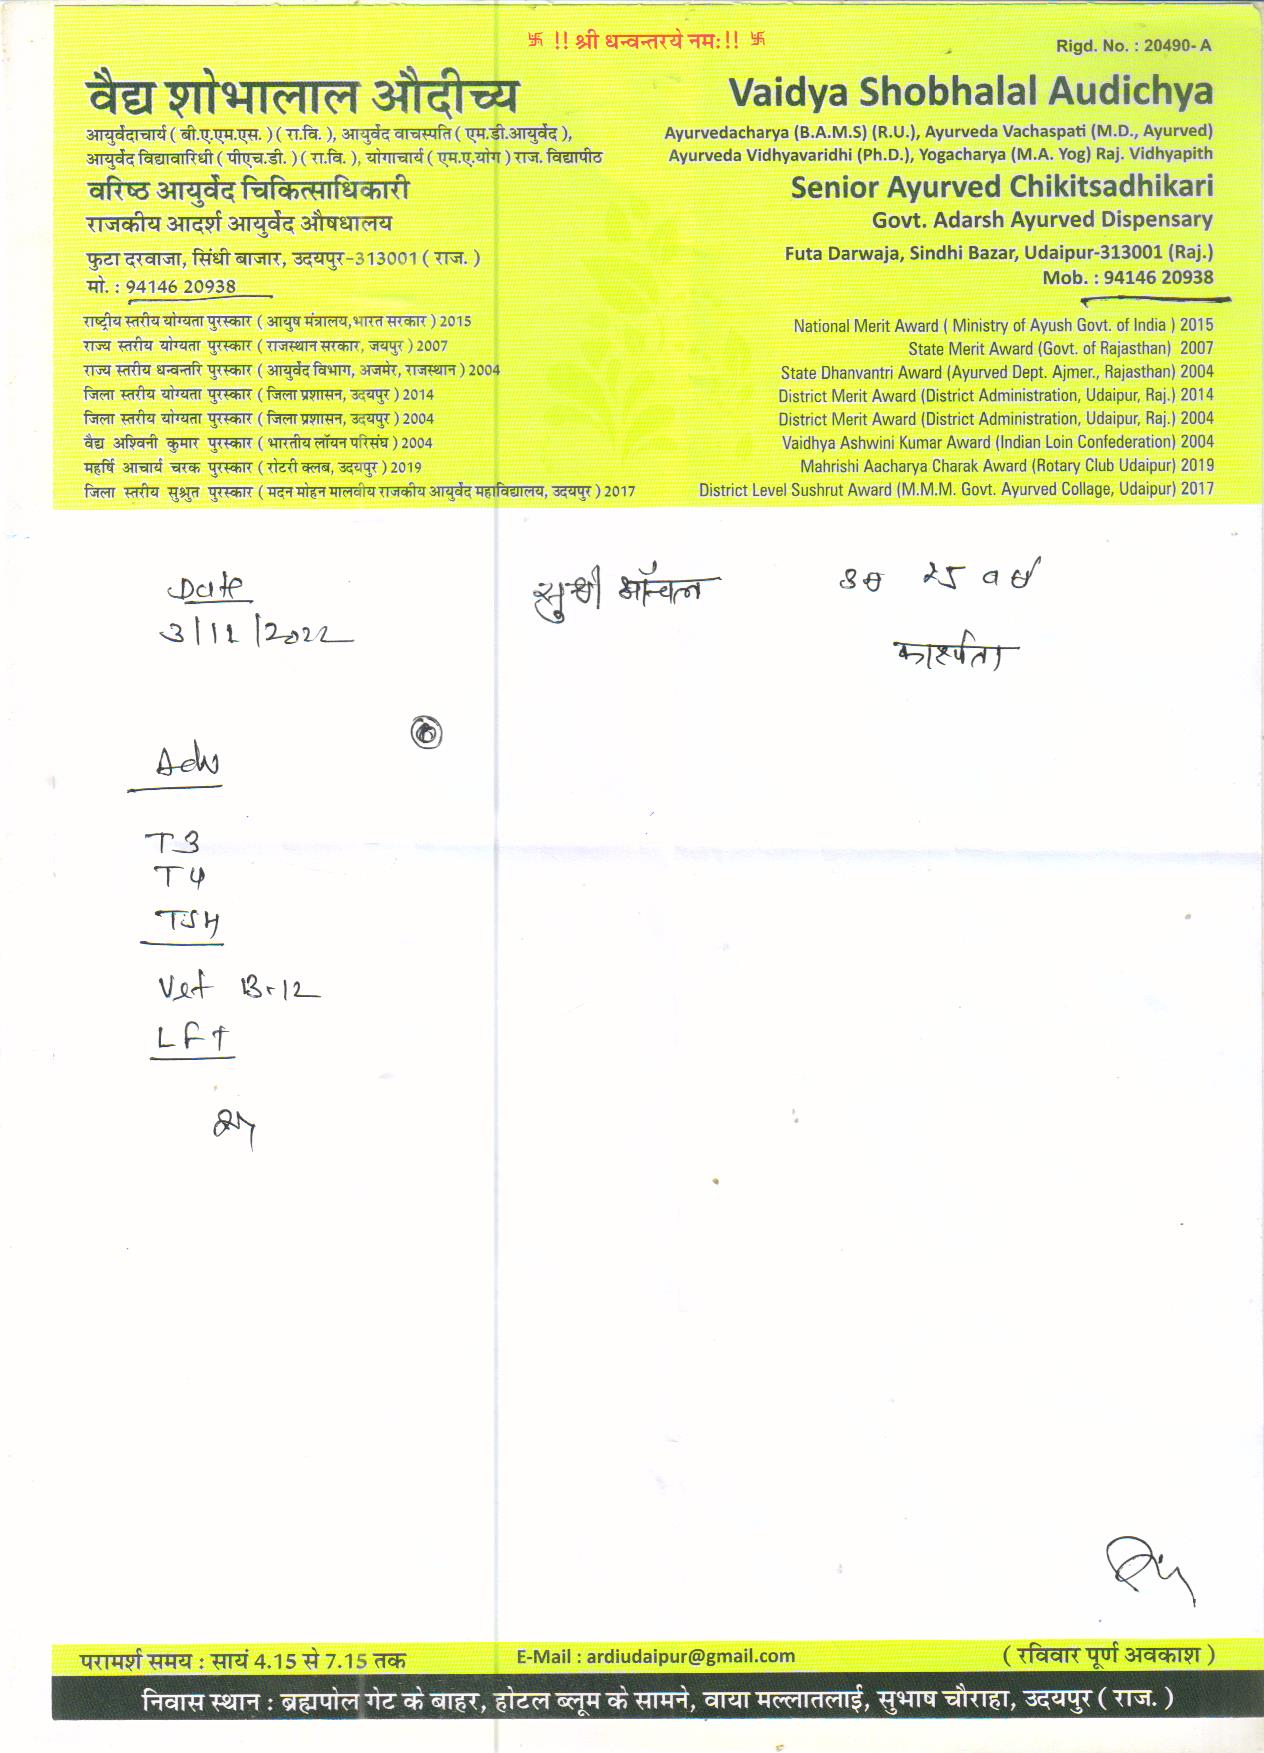 卐 !! श्री धन्वन्तरये नमः!! 卐
Rigd. No. : 20490-A
वैद्य शोभालाल औदीच्य
आयुर्वेदाचार्य ( बी.ए.एम.एस. ) ( रा.वि. ), आयुर्वेद वाचस्पति ( एम.डी.आयुर्वेद ),
आयुर्वेद विद्यावारिधी ( पीएच.डी. ) ( रा.वि. ), योगाचार्य ( एम.ए.योग ) राज. विद्यापीठ
वरिष्ठ आयुर्वेद चिकित्साधिकारी
राजकीय आदर्श आयुर्वेद औषधालय
फुटा दरवाजा, सिंधी बाजार, उदयपुर-313001 ( राज. )
मो. : 94146 20938
राष्ट्रीय स्तरीय योग्यता पुरस्कार ( आयुष मंत्रालय,भारत सरकार ) 2015
राज्य स्तरीय योग्यता पुरस्कार ( राजस्थान सरकार, जयपुर ) 2007
राज्य स्तरीय धन्वन्तरि पुरस्कार ( आयुर्वेद विभाग, अजमेर, राजस्थान ) 2004
जिला स्तरीय योग्यता पुरस्कार ( जिला प्रशासन, उदयपुर ) 2014
जिला स्तरीय योग्यता पुरस्कार ( जिला प्रशासन, उदयपुर ) 2004
वैद्य अश्विनी कुमार पुरस्कार ( भारतीय लॉयन परिसंघ ) 2004
महर्षि आचार्य चरक पुरस्कार ( रोटरी क्लब, उदयपुर ) 2019
जिला स्तरीय सुश्रुत पुरस्कार ( मदन मोहन मालवीय राजकीय आयुर्वेद महाविद्यालय, उदयपुर ) 2017
Vaidya Shobhalal Audichya
Ayurvedacharya (B.A.M.S) (R.U.), Ayurveda Vachaspati (M.D., Ayurved)
Ayurveda Vidhyavaridhi (Ph.D.), Yogacharya (M.A. Yog) Raj. Vidhyapith
Senior Ayurved Chikitsadhikari
Govt. Adarsh Ayurved Dispensary
Futa Darwaja, Sindhi Bazar, Udaipur-313001 (Raj.)
Mob. : 94146 20938
National Merit Award ( Ministry of Ayush Govt. of India ) 2015
State Merit Award (Govt. of Rajasthan) 2007
State Dhanvantri Award (Ayurved Dept. Ajmer., Rajasthan) 2004
District Merit Award (District Administration, Udaipur, Raj.) 2014
District Merit Award (District Administration, Udaipur, Raj.) 2004
Vaidhya Ashwini Kumar Award (Indian Loin Confederation) 2004
Mahrishi Aacharya Charak Award (Rotary Club Udaipur) 2019
District Level Sushrut Award (M.M.M. Govt. Ayurved Collage, Udaipur) 2017
Date
3/12/2022
सुश्री आँचल
उम्र 25 वर्ष
Adv
T3
T4
TSH
Vit B-12
LFT
परामर्श समय : सायं 4.15 से 7.15 तक
E-Mail : ardiudaipur@gmail.com
( रविवार पूर्ण अवकाश )
निवास स्थान : ब्रह्मपोल गेट के बाहर, होटल ब्लूम के सामने, वाया मल्लातलाई, सुभाष चौराहा, उदयपुर ( राज. )